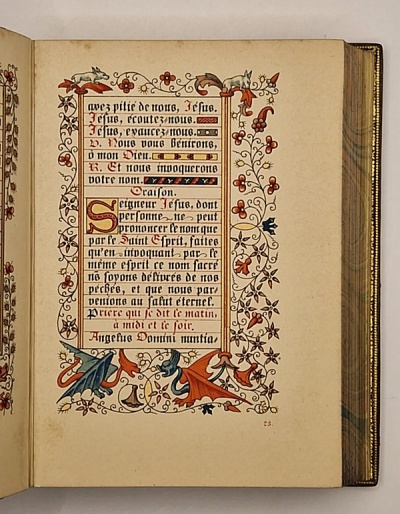 ayez pitié de nous, Jésus.
Jésus, écoutez-nous.
Jésus, exaucez-nous.
V. Nous vous bénirons,
ô mon Dieu.
R. Et nous invoquerons
votre nom.
Oraison.
Seigneur Jésus, dont
personne ne peut
prononcer le nom que
par le Saint Esprit, faites
qu'en invoquant par le
même esprit ce nom sacré
nous soyons délivrés de nos
péchés, et que nous par-
venions au salut éternel.
Prière qui se dit le matin,
à midi et le soir.
Angelus Domini nuntia-
23.